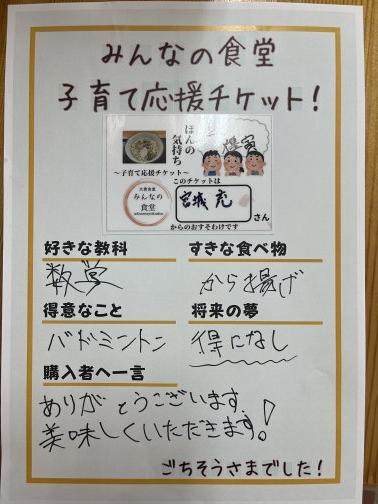 みんなの食堂
子育て応援チケット!
ほんの
気持ち
～子育て応援チケット～
このチケットは
みんなの
食堂
さん
からのおすそわけです
好きな教科
すきな食べ物
数学
から揚げ
得意なこと
将来の夢
バドミントン
得になし
購入者へ一言
ありがとうございます。
美味しくいただきます!
ごちそうさまでした!